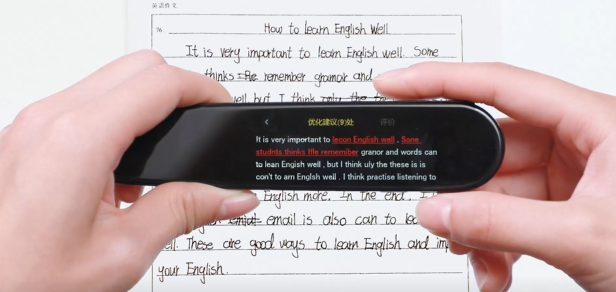 英语作文
76.
How to learn English Well
It is very important to learn English well. Some
thinks the remember gramar and
well but I think only the the
‹ 优化建议(9)处 评价
It is very important to lecon English well . Sone
studnts thinks Hfle remembier granor and words can
to lean Engish well , but I think uly the these is is
con't to arn Englsh well . I think practise listening to
English more. In the end, I
email email is also can to lea
ell. These are good ways to learn English and imp
your English.